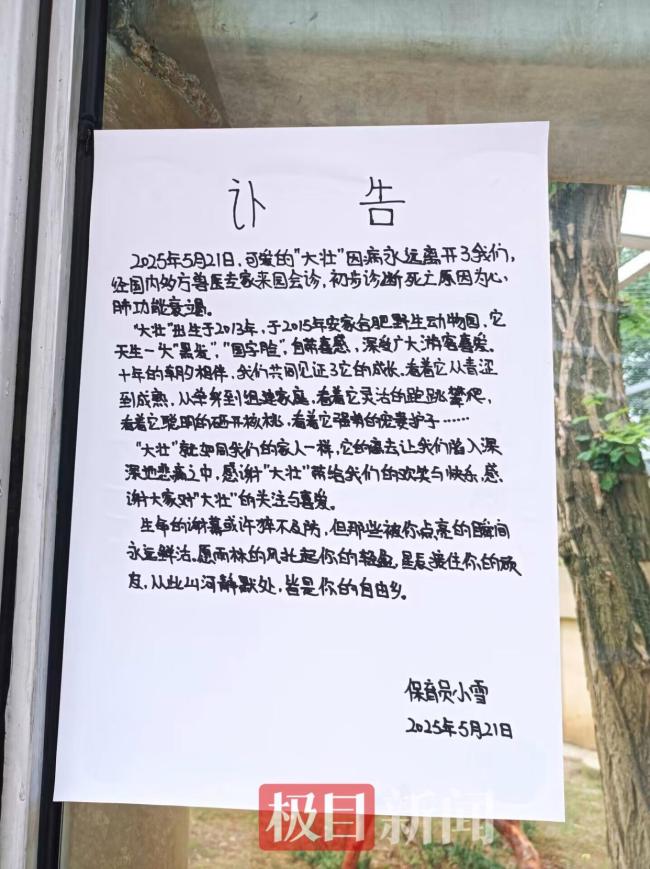 讣 告
2025年5月21日，可爱的"大壮"因病永远离开了我们，
经国内多方兽医专家来园会诊，初步诊断死亡原因为心，
肺功能衰竭。
"大壮"出生于2013年，于2015年安家合肥野生动物园，它
天生一头"黑发"，"国字脸"，自带喜感，深受广大游客喜爱。
十年的朝夕相伴，我们共同见证了它的成长，看着它从青涩
到成熟，从单身到组建家庭，看着它灵活的跑跳攀爬，
看着它聪明的砸开核桃，看着它强势的宠妻护子……
"大壮"就如同我们的家人一样，它的离去让我们陷入深
深地悲痛之中，感谢"大壮"带给我们的欢笑与快乐，感
谢大家对"大壮"的关注与喜爱。
生命的谢幕或许猝不及防，但那些被你点亮的瞬间
永远鲜活。愿雨林的风托起你的轻盈，星辰接住你的顽
皮，从此山河静默处，皆是你的自由乡。
保育员小雪
2025年5月21日
极目新闻